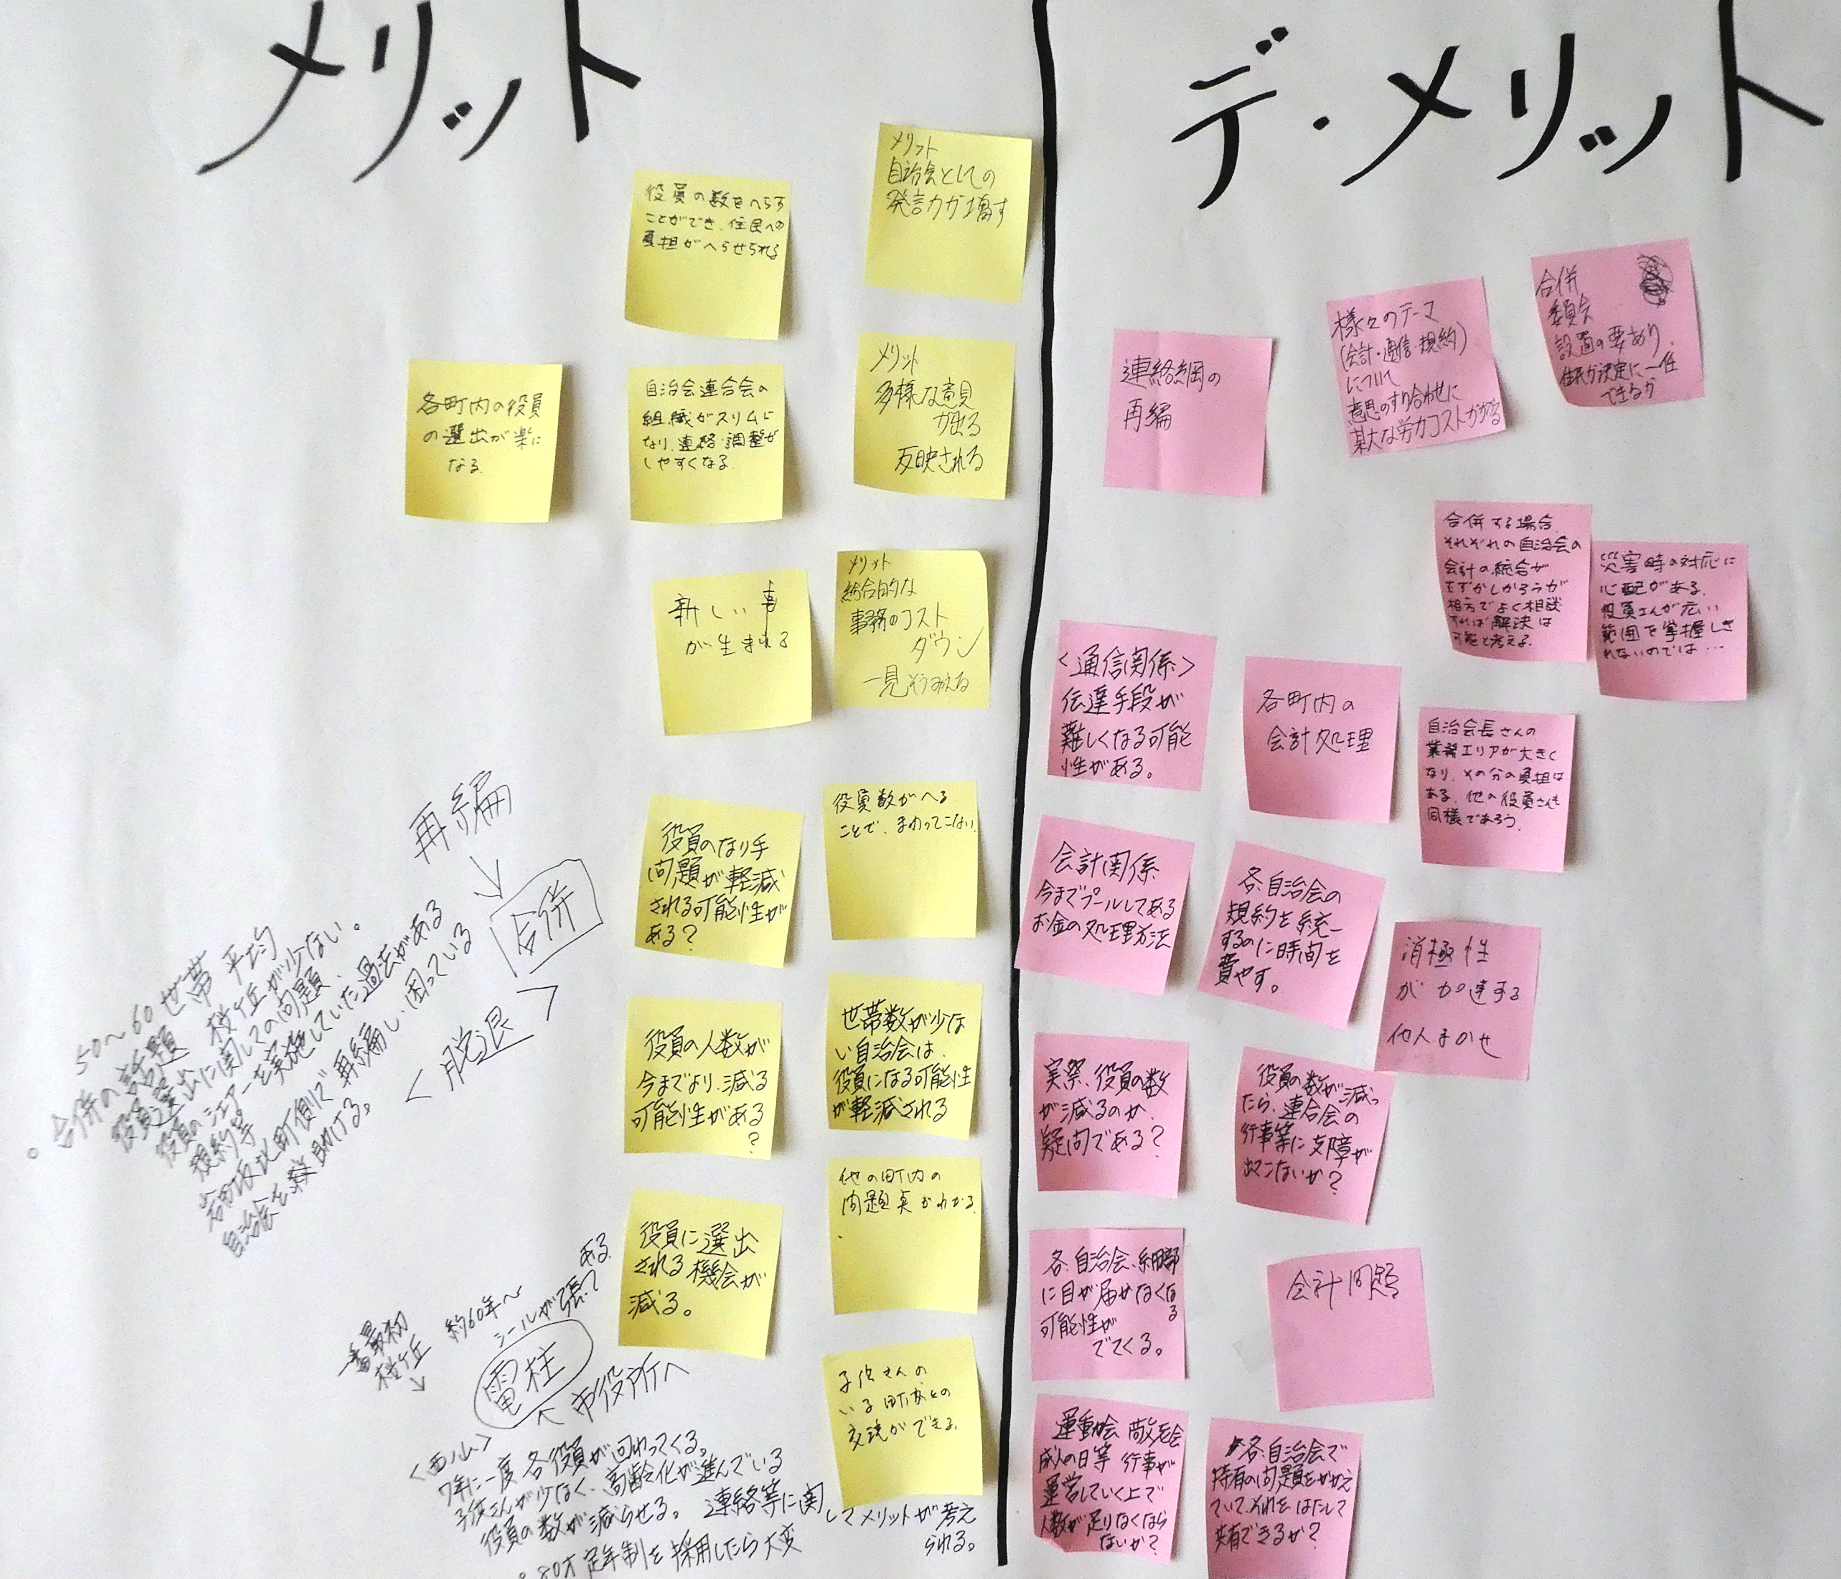 メリット
役員の数をへらす
ことができ、住民への
負担がへらせられる
メリット
自治会としての
発言力が増す
各町内の役員
の選出が楽に
なる。
自治会連合会の
組織がスリムに
なり、連絡・調整が
しやすくなる。
メリット
多様な意見
が出る
反映される
新しい事
が生まれる
メリット
総合的な
事務のコスト
ダウン
一見そうみえる
役員のなり手
問題が軽減
される可能性が
ある?
役員数がへる
ことで、まわってこない
役員の人数が
今までより、減る
可能性がある
?
世帯数が少な
い自治会は、
役員になる可能性
が軽減される
役員に選出
される機会が
減る。
他の町内の
問題点がわかる
子供さんの
いる町内との
交流ができる
再編
合併
<脱退>
50〜60世帯 平均
・合併の話題 桜ヶ丘が少ない。
役員選出に関しての問題、
役員のシェアーを実施していた過去がある
規約等
自治会を救助ける。
一番最初
桜ヶ丘 約60年〜
シールが張って
ある
電柱
市役所へ
<西ノ山>
7年に一度 各役員が回わってくる。
子供さんが少なく、高齢化が進んでいる
役員の数が減らせる。 連絡等に関してメリットが考え
られる。
・80才定年制を採用したら大変
デ・メリット
連絡網の
再編
様々のテーマ
(会計・通信・規約)
について
意思のすり合わせに
莫大な労力コストがかかる
合併
委員会
設置の要あり
住民が決定に一任
できるか
合併する場合、
それぞれの自治会の
会計の統合が
むずかしかろうが
相方でよく相談
すれば解決は
可能と考えよ。
災害時の対応に
心配がある。
役員さんが広い
範囲を掌握しき
れないのでは…
<通信関係>
伝達手段が
難しくなる可能
性がある。
各町内の
会計処理
自治会長さんの
業務エリアが大きく
なり、その分の負担は
ある。他の役員さんも
同様であろう。
会計関係
今までプールしてある
お金の処理方法
各自治会の
規約を統一
するのに時間を
費やす。
消極性
が加速する
他人まかせ
実際、役員の数
が減るのか、
疑問である?
役員の数が減っ
たら、連合会の
行事等に支障が
出てこないか?
各自治会、細部
に目が届かなくなる
可能性が
でてくる。
会計問題
運動会 敬老会
成人の日等 行事が
運営していく上で
人数が足りなくなら
ないか?
各自治会で
特有の問題をかかえ
ていて、それをはたして
共有できるか?